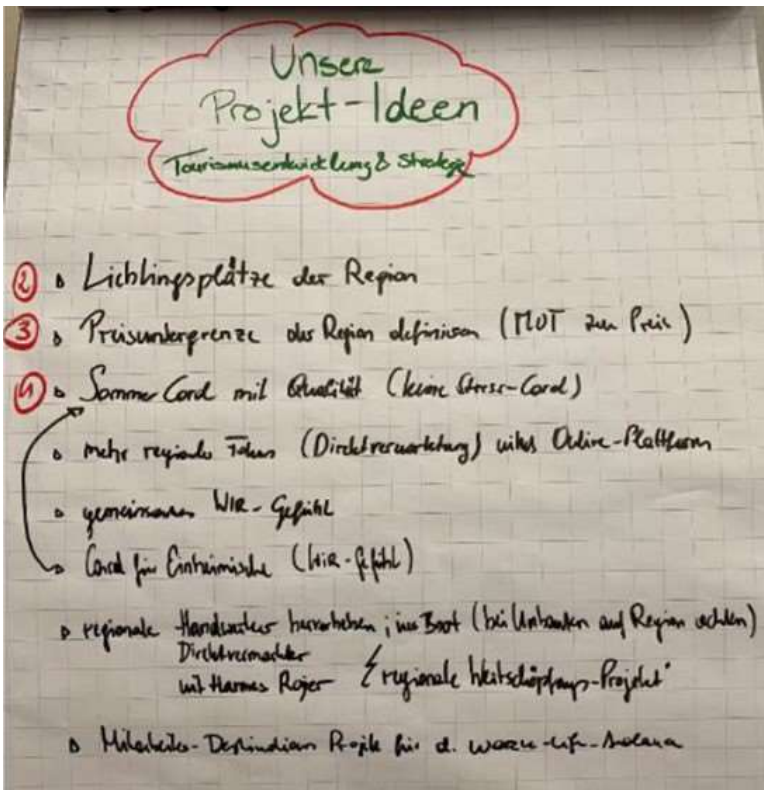 Unsere
Projekt-Ideen
Tourismusentwicklung & Strategie
② Lieblingsplätze der Region
③ Preisuntergrenze der Region definieren (MUT zum Preis)
① SommerCard mit Qualität (keine Storno-Card)
mehr regionaler Fokus (Direktvermarktung) mittels Online-Plattform
gemeinsames WIR-Gefühl
Card für Einheimische (WIR-Gefühl)
regionale Handwerker hervorheben; ins Boot (bei Umbauten auf Region achten)
Direktvermarkter
mit Hannes Rojer "regionale Wertschöpfungs-Projekt"
Mitarbeiter-Destination Projekte für d. work-life-Balance